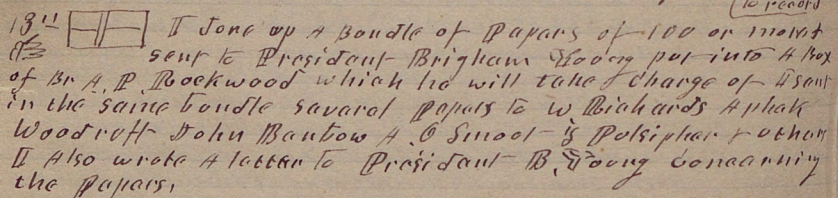 to record
13th I Done up A Bundle of Papers of 100 or more I
sent to Presidant Brigham Young put into A Box
of Br A. P. Rockwood which he will take charge of I sent
in the same bundle Saveral papers to W Richards Aphek
Woodruff John Bantow A. O Smoot Polsipher & others
I Also wrote A letter to Presidant B. Young Concerning
the papers.